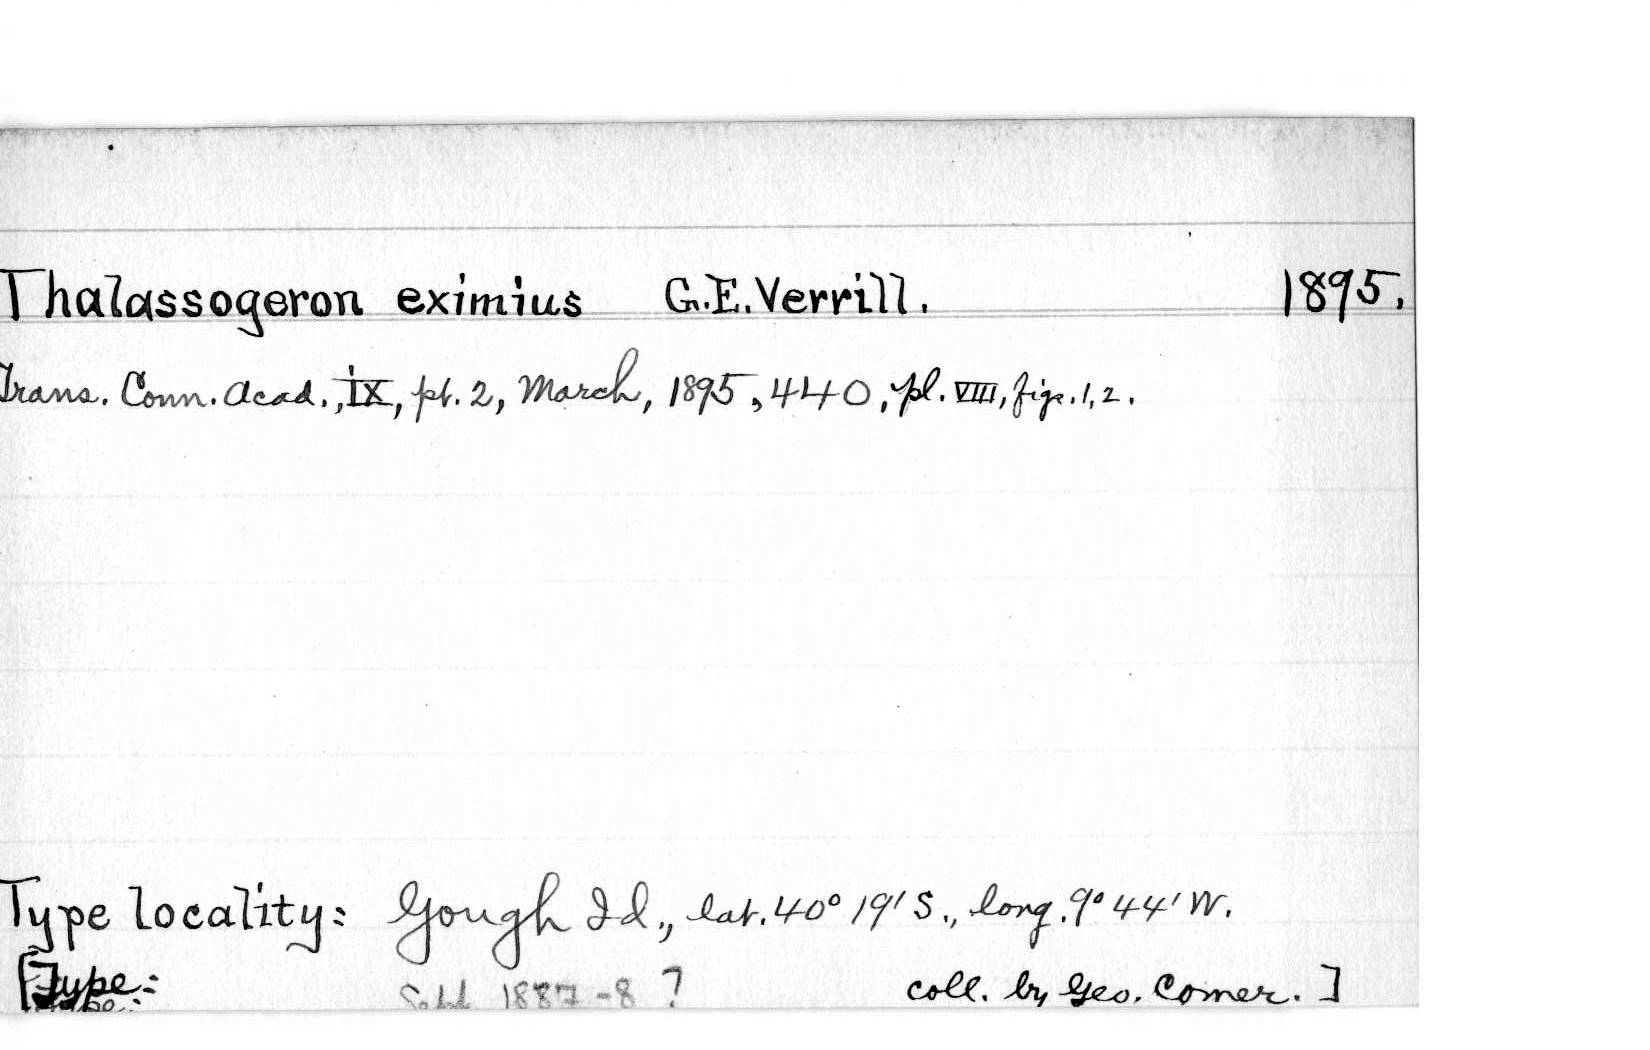 Thalassogeron eximius G.E.Verrill. 1895.
Trans. Conn. Acad., IX, pt. 2, March, 1895, 440, pl. VIII, figs. 1, 2.
Type locality: Gough Id., lat. 40° 19' S., long. 9° 44' W.
[Type: 1887-8 ? coll. by Geo. Comer. ]